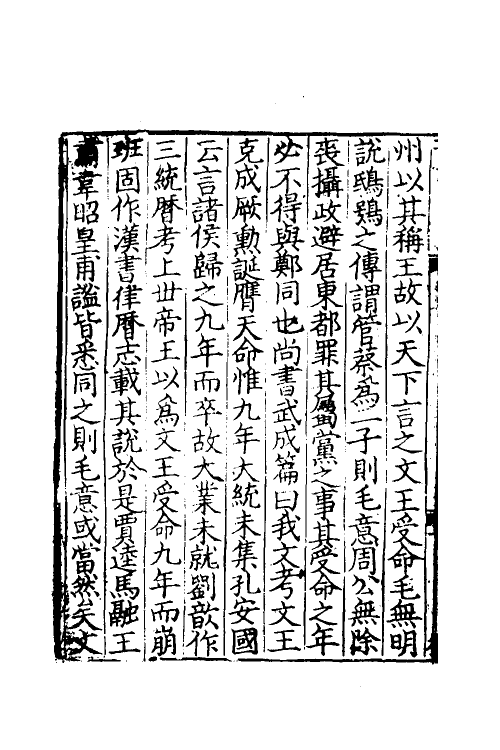 州以其稱王故以天下言之文王受命毛無明
說鴟鴞之傳謂管蔡爲二子則毛意周公無除
喪攝政避居東都罪其屬黨之事其受命之年
必不得與鄭同也尚書武成篇曰我文考文王
克成厥勳誕膺天命惟九年大統未集孔安國
云言諸侯歸之九年而卒故大業未就劉歆作
三統曆考上丗帝王以爲文王受命九年而崩
班固作漢書律曆志載其說於是賈逵馬融王
肅韋昭皇甫謐皆悉同之則毛意或當然矣文